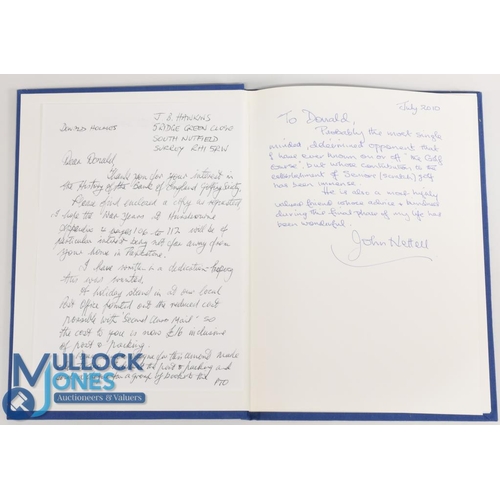 J. B. HAWKINS
DONALD HOLMES
5 RIDGE GREEN CLOSE
SOUTH NUTFIELD
SURREY RH1 5RW
Dear Donald,
Thank you for your interest in
the History of the Bank of England Golfing Society.
Please find enclosed a copy as requested
I hope the "War Years at Hurstbourne"
appendix on pages 106 to 117 will be of
particular interest being not far away from
your home in
I have written in a dedication hoping
this was wanted.
A holiday stand in at our local
Post Office pointed out the reduced cost
possible with "Second Class Mail" so
the cost to you is now £16 inclusive
of post & packing.
for this amount made
the post & packing and
a group of Doctors the
PTO
July 2010
To Donald,
Probably the most single
minded, determined opponent that
I have ever known on or off the Golf
Course, but whose contribution to the
establishment of Senior golf
has been immense.
He is also a most highly
valued friend whose advice & kindness
during the final phase of my life has
been wonderful
John Nettell
MULLOCK
JONES
Auctioneers & Valuers